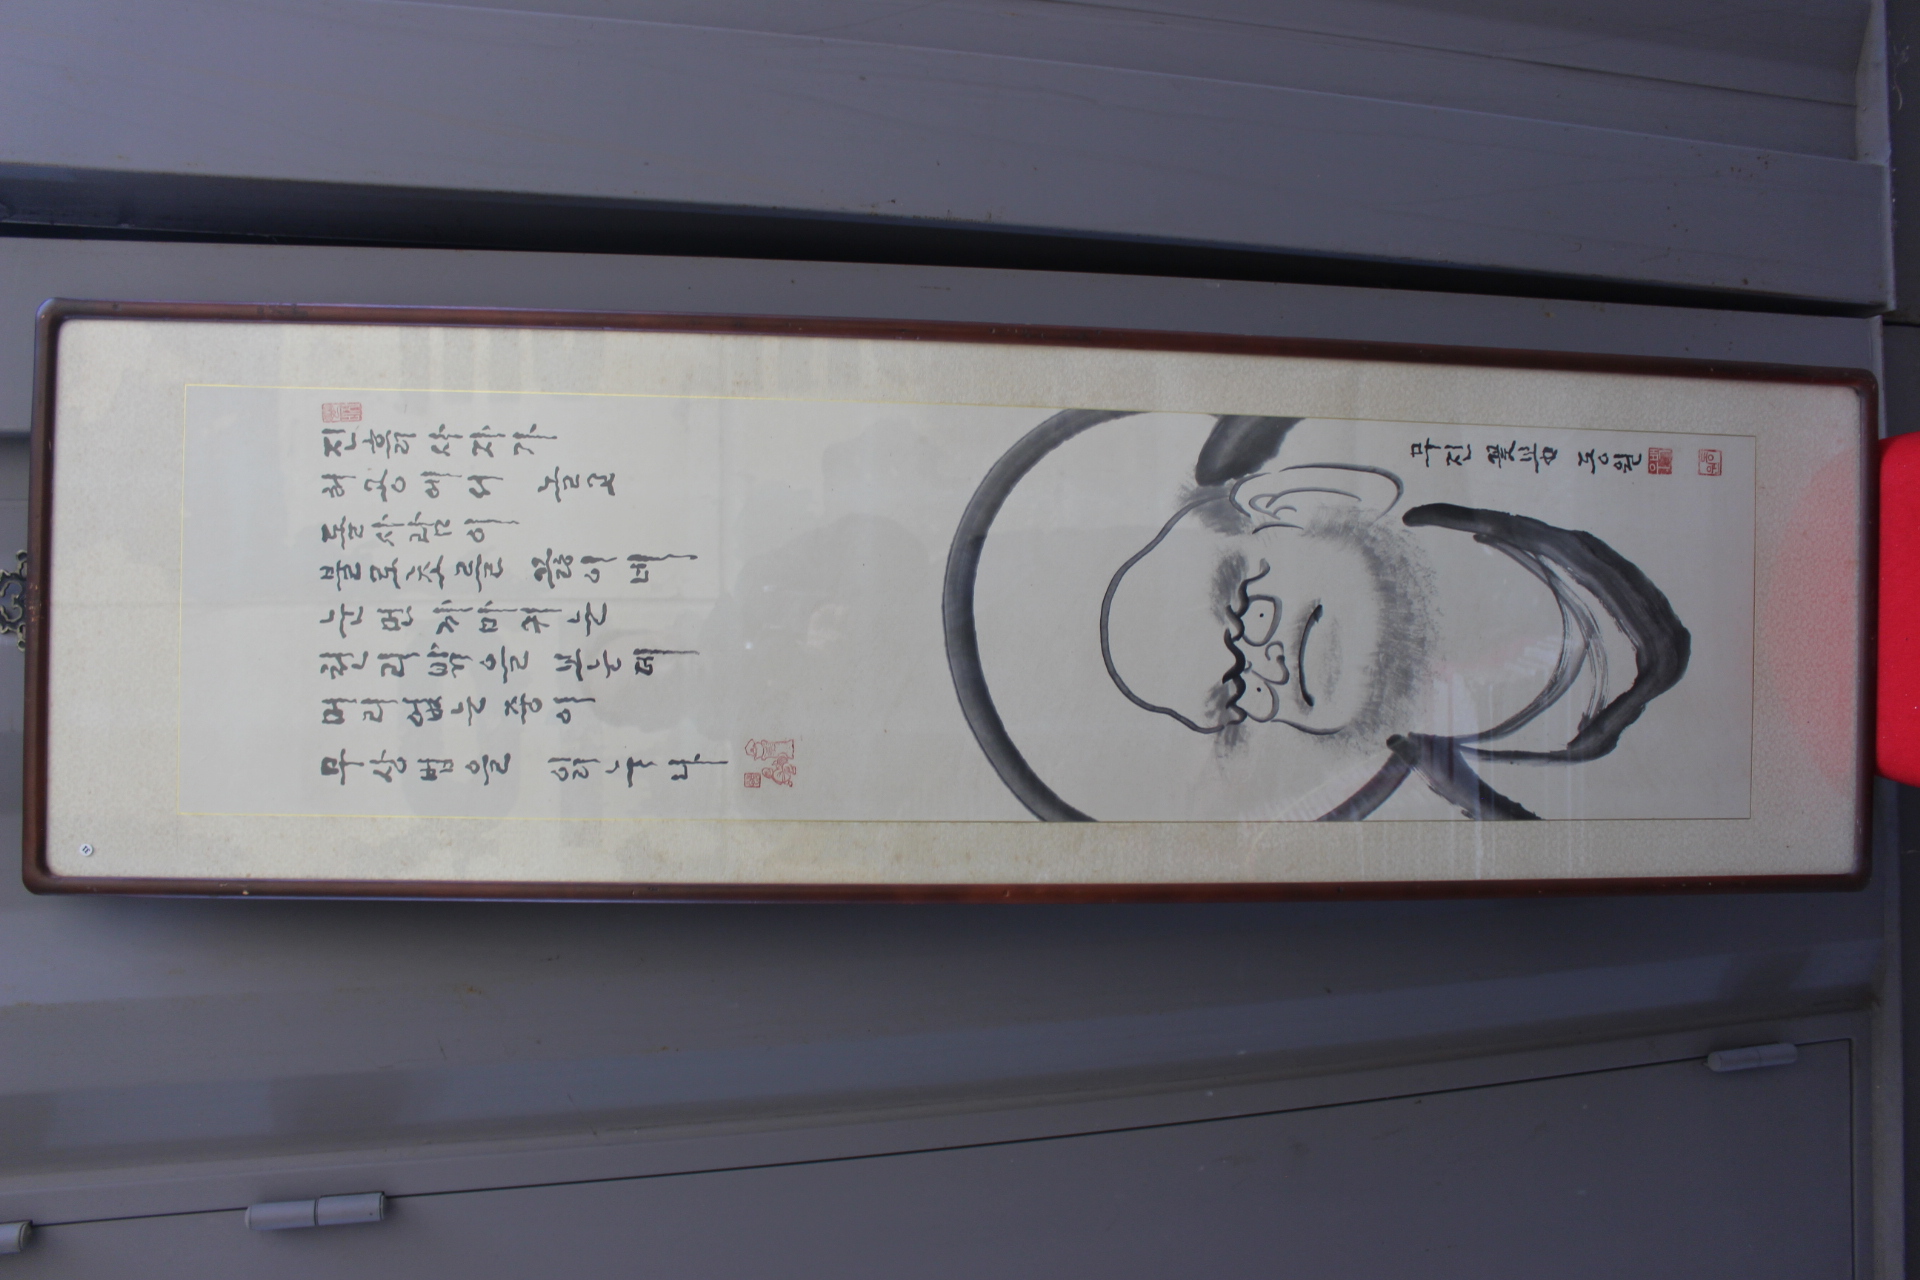 진흙사자가
허공에서 놀고
돌사람이
불로초를 끓이네
눈먼 까마귀는
천리밖을 보는데
머리없는 중이
무상법을 읽누나
무진 꽃봄 동원